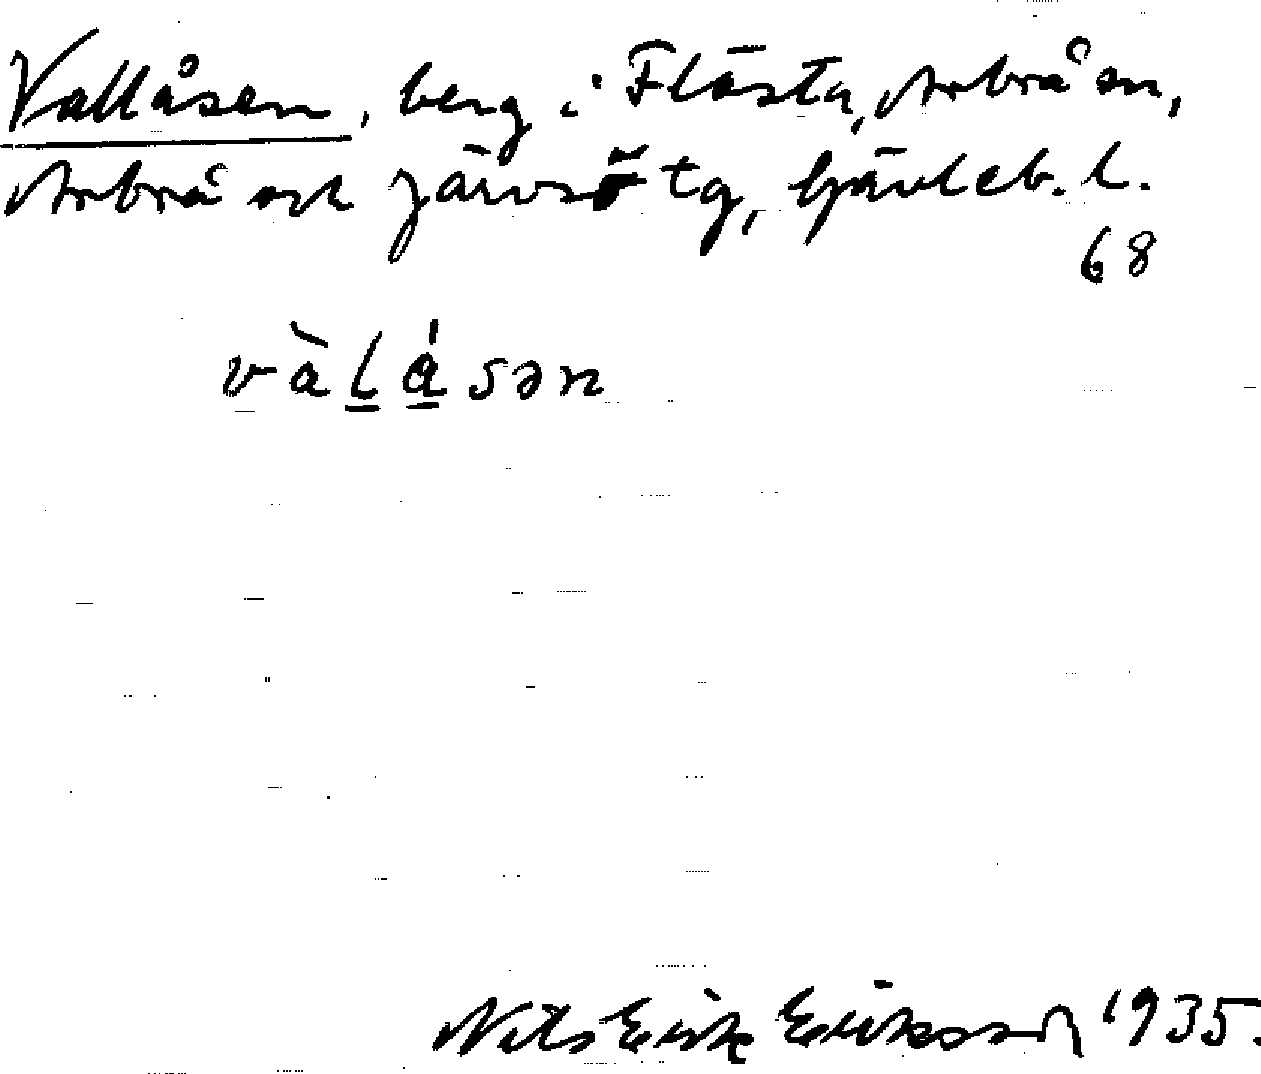 Vallåsen, berg i Flästa, Arbrå sn,
Arbrå och Järvsö tg, Gävleb. l.
68
vàLåsən
Nils Erik Eriksson 1935.